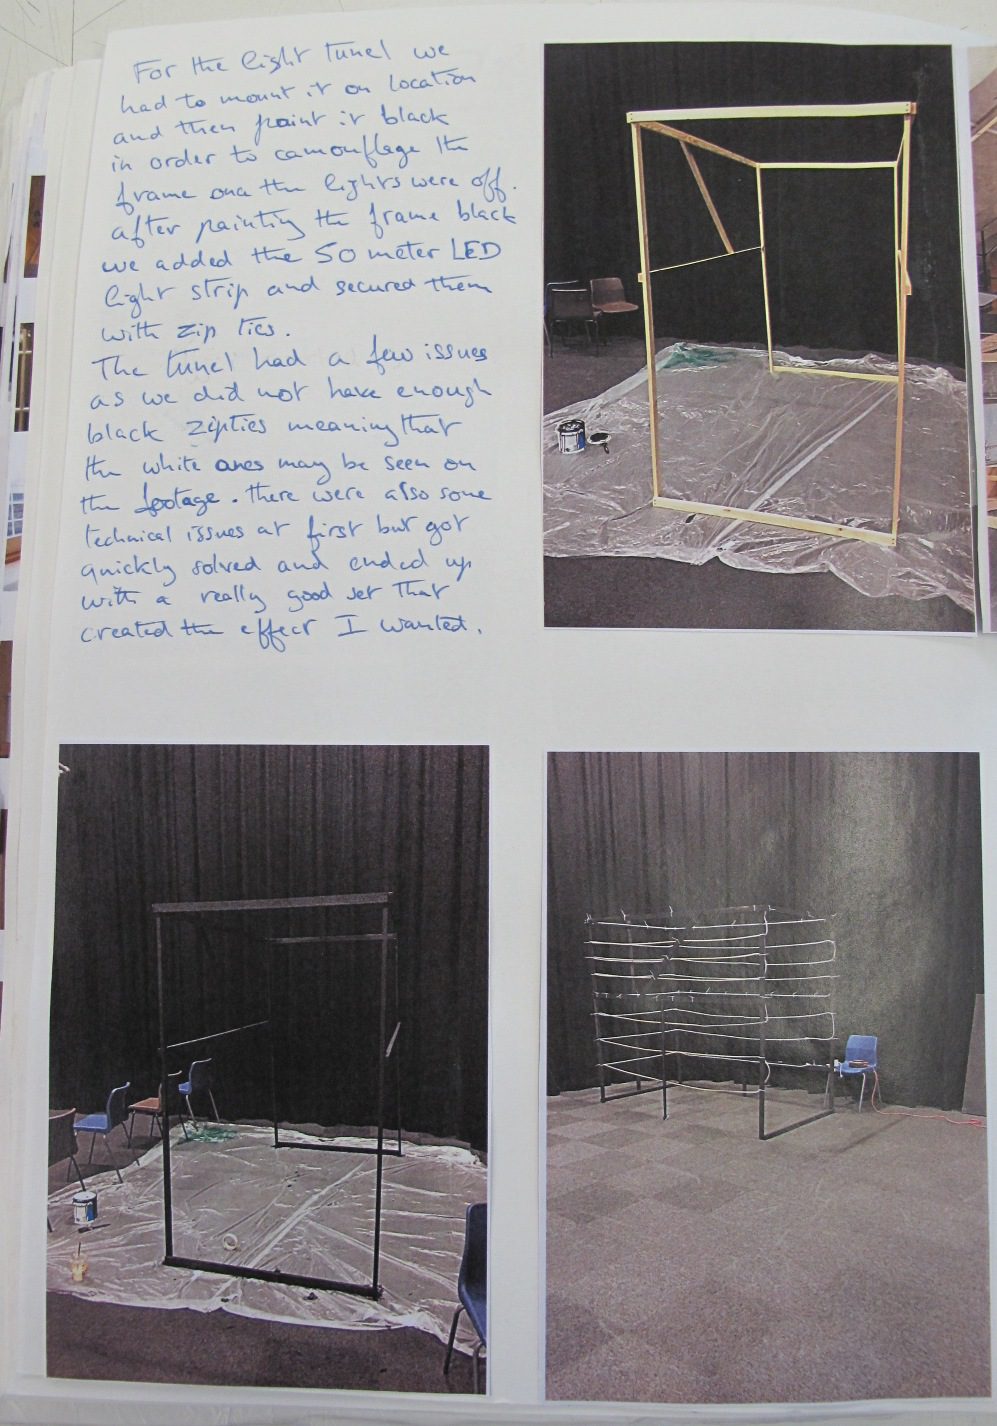 For the light tunel we
had to mount it on location
and then paint it black
in order to camouflage the
frame once the lights were off.
after painting the frame black
we added the 50 meter LED
light strip and secured them
with zip ties.
The tunel had a few issues
as we did not have enough
black zipties meaning that
the white ones may be seen on
the footage. there were also some
technical issues at first but got
quickly solved and ended up
with a really good set that
created the effect I wanted.